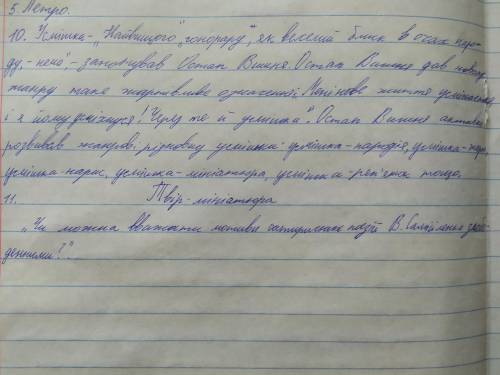 5. Метро.
10. Усмішка - "Найвищого" гонорару", як веселий блик в очах наро-
ду, - нема", - занотував Остап Вишня. Остап Вишня дав новому
жанру таке жартівливе означення: Мені нове життя усміхається
і я йому усміхнуся! Через те й усмішки". Остап Вишня активно
розвивав жанров. різновид усмішки: усмішка-пародія, усмішка-жарт,
усмішка-нарис, усмішка-мініатюра, усмішка-реп'яшок тощо.
11. Твір-мініатюра
"Чи можна вважати мотиви сатиричних поезій В. Самійленка злобо-
денними?".